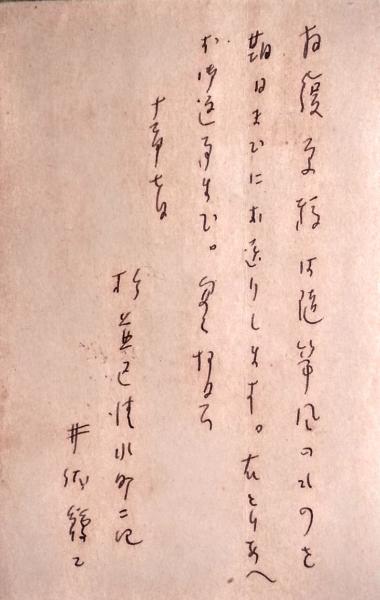 拝復 原稿は随筆風のものを
期日までにお送りします。右とりあへ
ず御返事まで。
七日
杉並区清水町二四
井伏鱒二